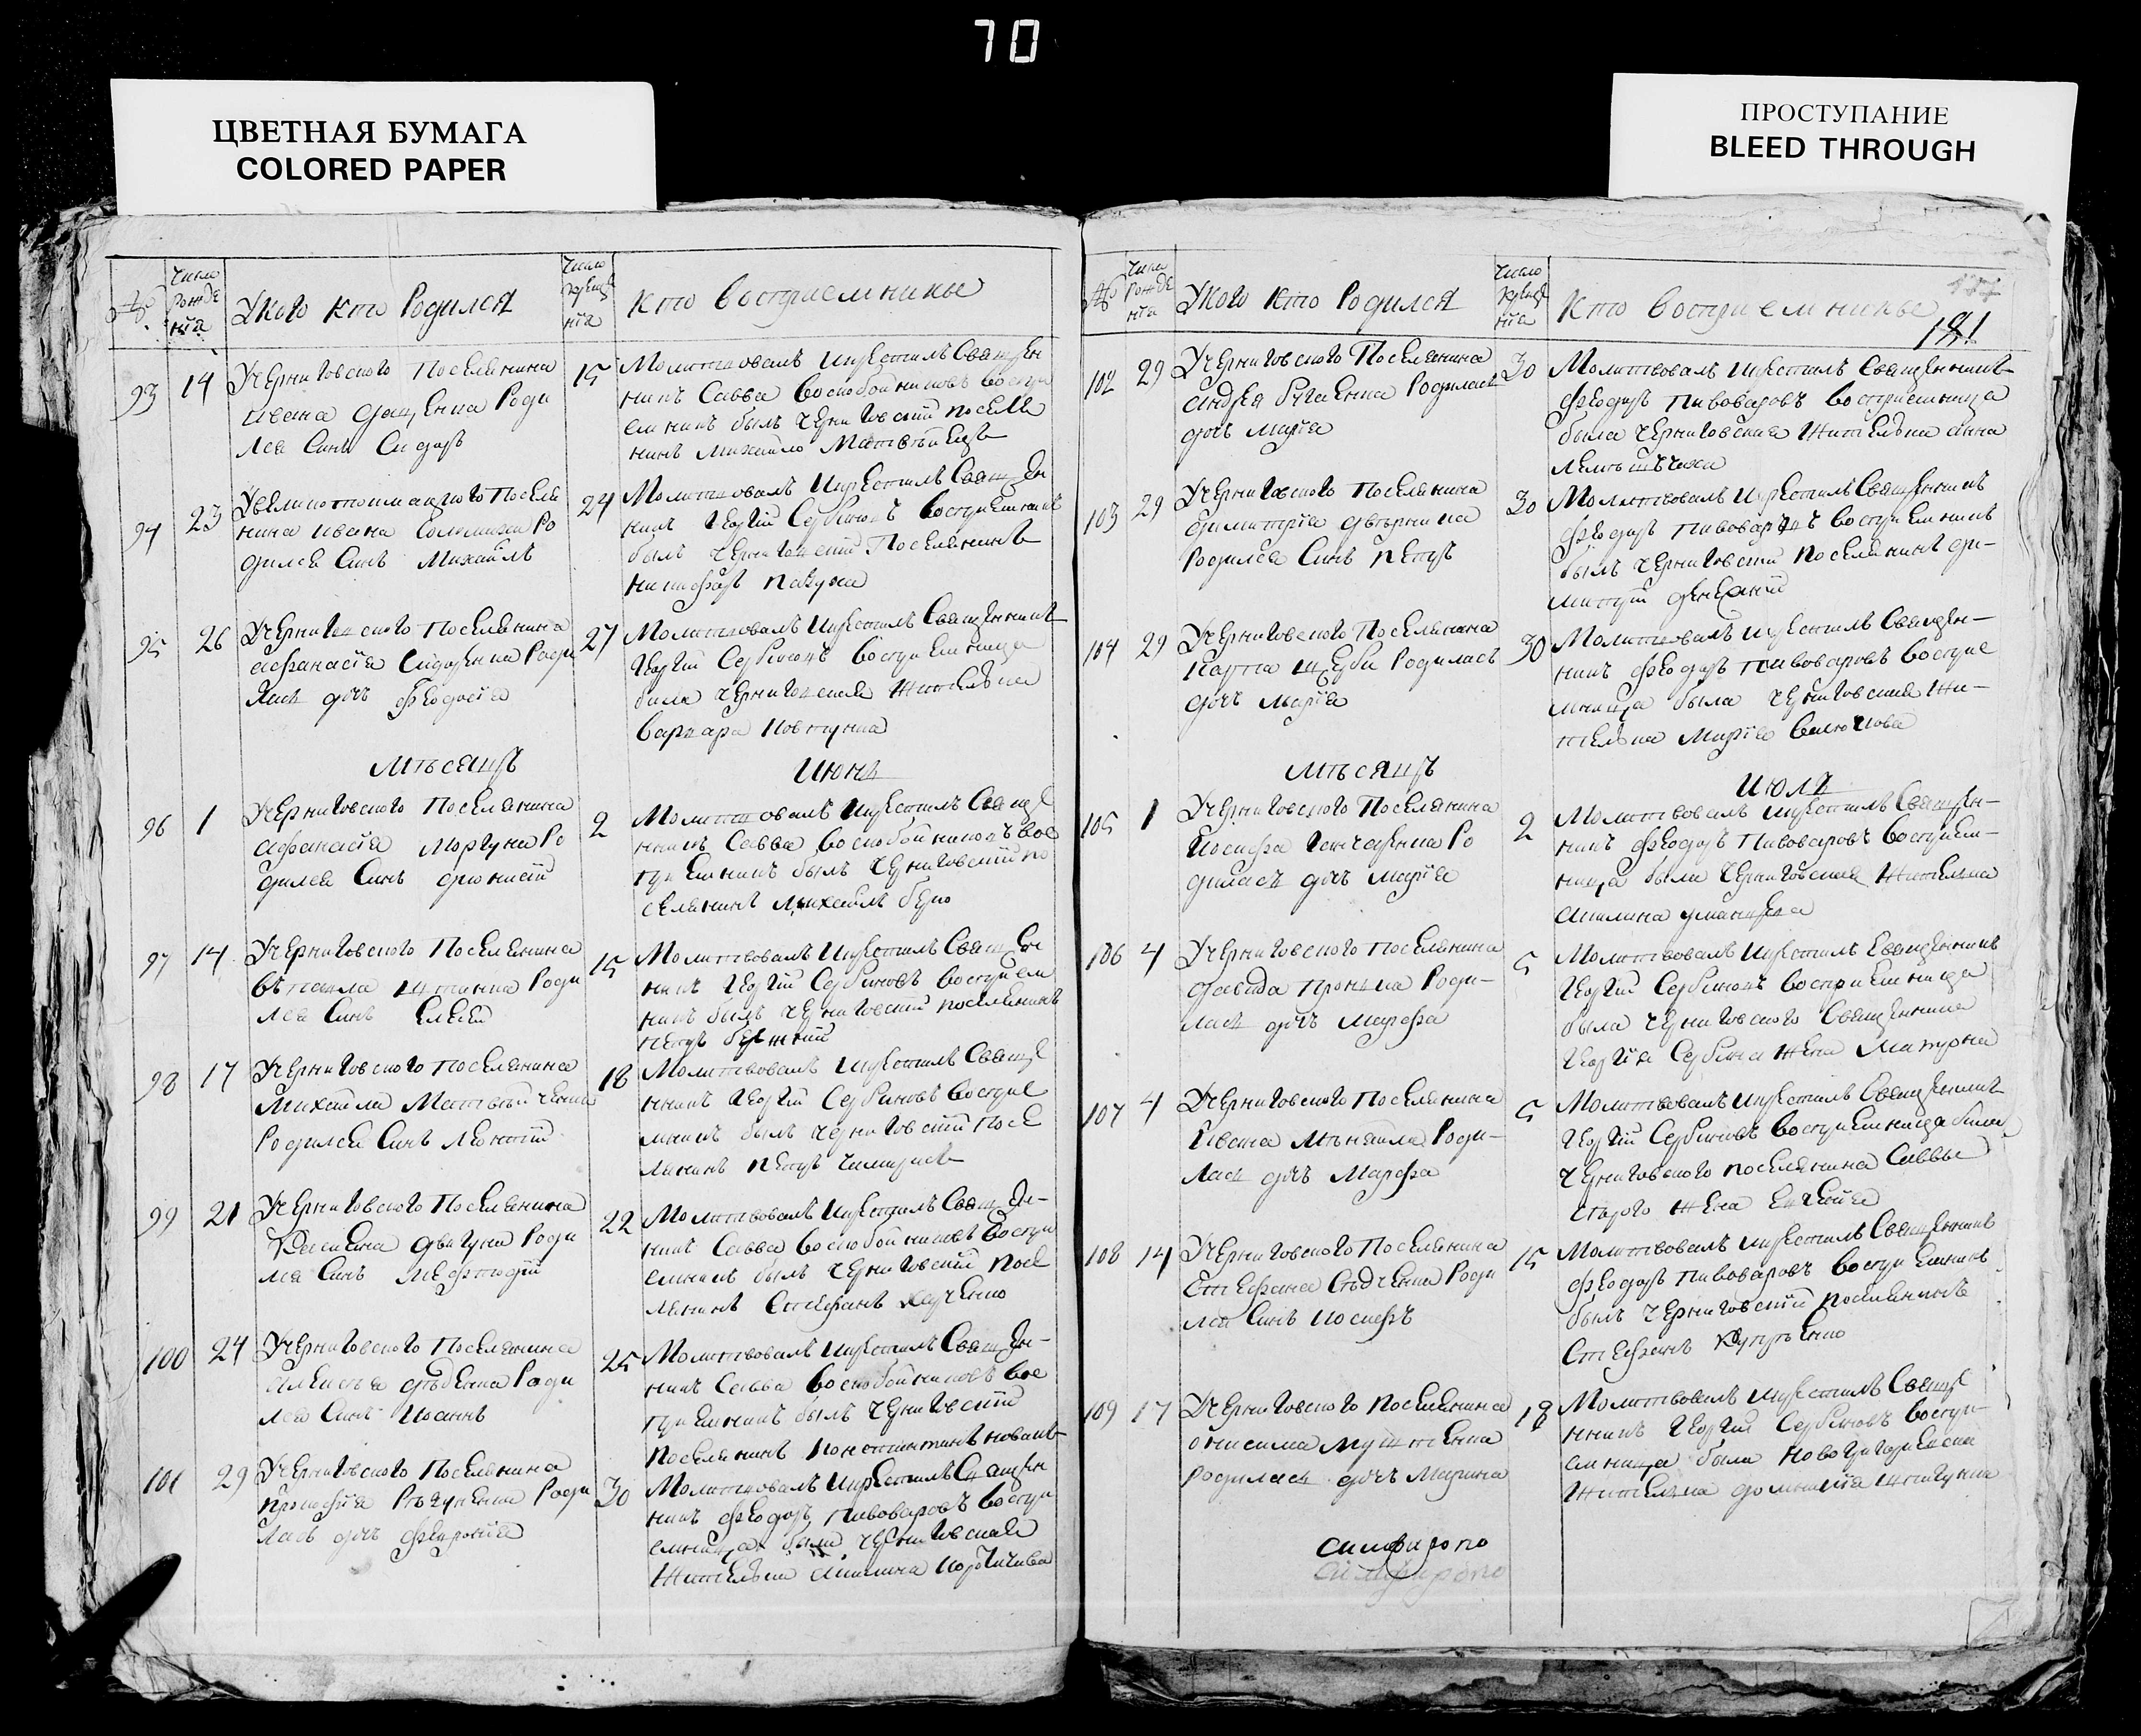 70
ЦВЕТНАЯ БУМАГА
COLORED PAPER
ПРОСТУПАНИЕ
BLEED THROUGH
№
Число рожде нїа
Укого кто Родился
Число креще нїа
кто восприемники
93
14
Учерниговского Поселянина
Ивана Роди
лся Синъ Сидоръ
15
Молитвовалъ икрестилъ Священ
никъ Савва Воскобойниковъ воспри
емникъ былъ черниговский поселя
нинъ михайло
94
23
Увеликотокмацкого Поселя
нина ивана Ро
дился Синъ Михаилъ
24
Молитвовалъ икрестилъ Священ
никъ Георгий Сербиновъ восприемникъ
былъ черниговский Поселянинъ
никифоръ
95
26
Учерниговского Поселянина
афанасїа Сидоренка Роди
лась дочъ феодосїа
27
Молитвовалъ икрестилъ Священникъ
Георгий Сербиновъ восприемница
била черниговская жителька
варвара
Мѣсяцъ
Июнь
96
1
Учерниговского Поселянина
афанасїа моргуна Ро
дился Синъ
2
Молитвовалъ икрестилъ Свяще
нникъ Савва воскобойниковъ вос
приемникъ былъ черниговский по
селянинъ михаилъ
97
14
Учерниговского Поселянина
Роди
лся Синъ Елисей
15
Молитвовалъ икрестилъ Священ
никъ Георгий Сербиновъ восприем
никъ былъ черниговский поселянинъ
петръ
98
17
Учерниговского поселянина
Михайла Матвѣйченка
Родился Синъ Леонтий
18
Молитвовалъ икрестилъ Свяще
нникъ Георгий Сербиновъ восприе
мникъ былъ черниговский посе
лянинъ петръ
99
21
Учерниговского Поселянина
двигуна Роди
лся Синъ Мефтодїй
22
Молитвовалъ икрестилъ Священ-
никъ Савва воскобойниковъ воспри
емникъ былъ черниговский посе
лянинъ Стефанъ
100
24
Учерниговского Поселянина
алексѣа дѣденка Роди
лся Синъ Иоаннъ
25
Молитвовалъ икрестилъ Священ-
никъ Савва воскобойниковъ вос
приемникъ былъ черниговский
поселянинъ константинъ
101
29
Учерниговского Поселянина
прокофїа Роди
лась дочъ
30
Молитвовалъ икрестилъ Священ
никъ феодоръ пивоваровъ воспри
емница была черниговская
жителька акилина
№
Число Рожде нїа
Укого кто Родился
Число креще нїа
Кто восприемники
181
102
29
Учерниговского Поселянина
андрея бугаенка Родилась
дочъ марїа
30
Молитвовалъ икрестилъ Священникъ
феодоръ пивоваровъ восприемница
была черниговская жителька анна
103
29
Учерниговского Поселянина
димитрїа дворника
Родился Синъ петръ
30
Молитвовалъ икрестилъ Священникъ
феодоръ пивоваровъ восприемникъ
былъ черниговский поселянинъ ди-
митрий
104
29
Учерниговского Поселянина
Карпа щерби Родилась
дочъ марїа
30
Молитвовалъ икрестилъ Священ-
никъ феодоръ пивоваровъ восприе
мница была черниговская жи-
телька марїа
мѣсяцъ
июля
105
1
Учерниговского Поселянина
Иосифа гончаренка Ро
дилась дочъ марїа
2
Молитвовалъ икрестилъ Священ-
никъ феодоръ пивоваровъ восприем-
ница была черниговская жителька
акилина уманцева
106
4
Учерниговского поселянина
давида пронка Роди-
лась дочъ марфа
5
Молитвовалъ икрестилъ Священникъ
Георгий Сербиновъ восприемница
была черниговского Священника
Георгїя Сербина жена Матрона
107
4
Учерниговского Поселянина
Ивана Роди-
лась дочъ Марфа
5
Молитвовалъ икрестилъ Священникъ
Георгий Сербиновъ восприемница была
черниговского поселянина Саввы
старого жена
108
14
Учерниговского Поселянина
Стефана Роди
лся Синъ Иосифъ
15
Молитвовалъ икрестилъ Священникъ
феодоръ пивоваровъ восприемникъ
былъ черниговский поселянинъ
Стефанъ
109
17
Учерниговского поселянина
Онисима
родилась дочъ Марина
18
Молитвовалъ икрестилъ Свяще
нникъ Георгий Сербиновъ воспри-
емница была новогригориевска
жителька домникїа
симфиропо
симфиропо